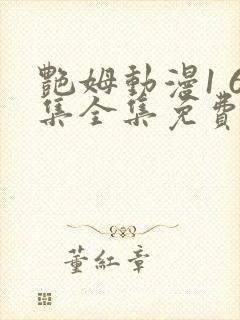 艷姆動漫1 6
集全集免費
董紅章